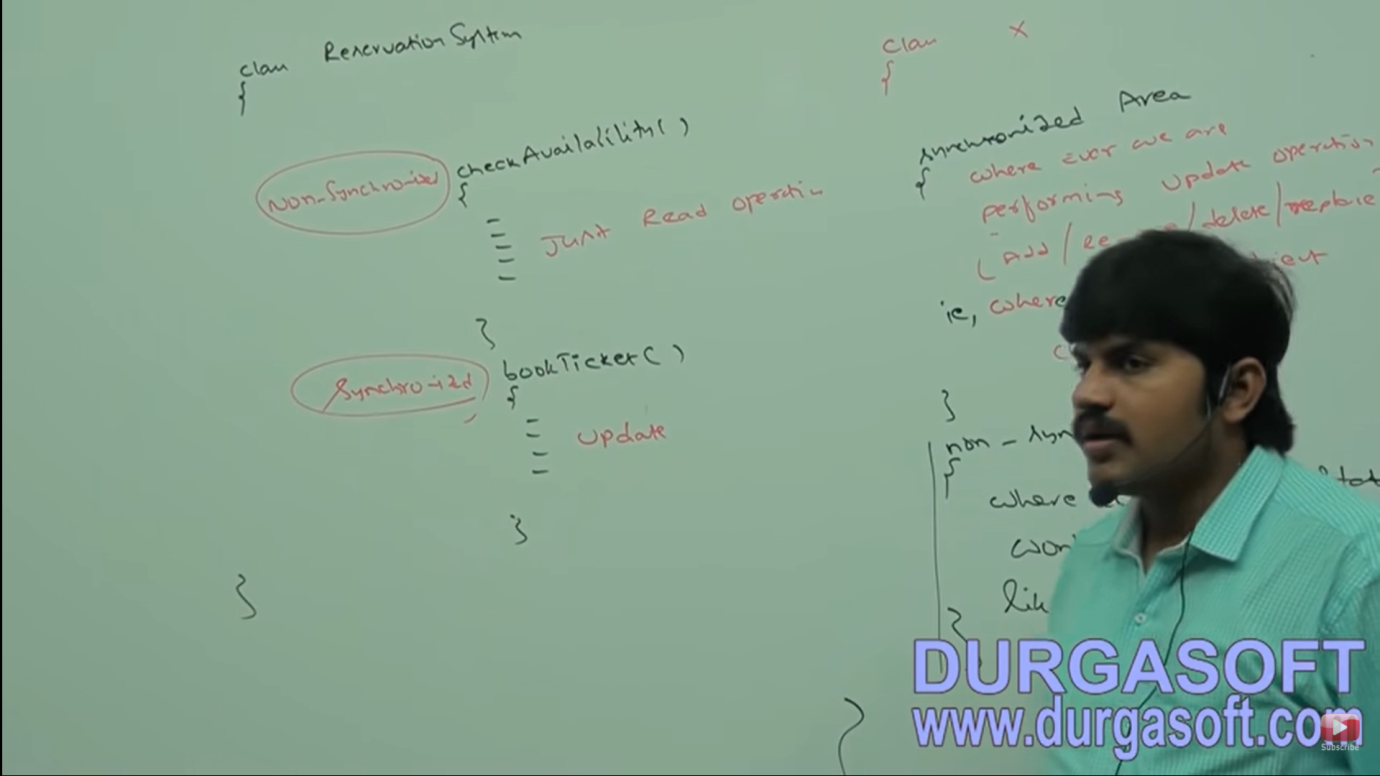 class ReservationSystem
{
Non-Synchronized checkAvailability()
{
Just Read operation
}
Synchronized bookTicket()
{
update
}
}
class X
{
synchronized Area
{ where ever we are
performing update operation
(Add / /delete/replace
ie, where
}
non-
{
where
}
}
DURGASOFT
www.durgasoft.com
Subscribe